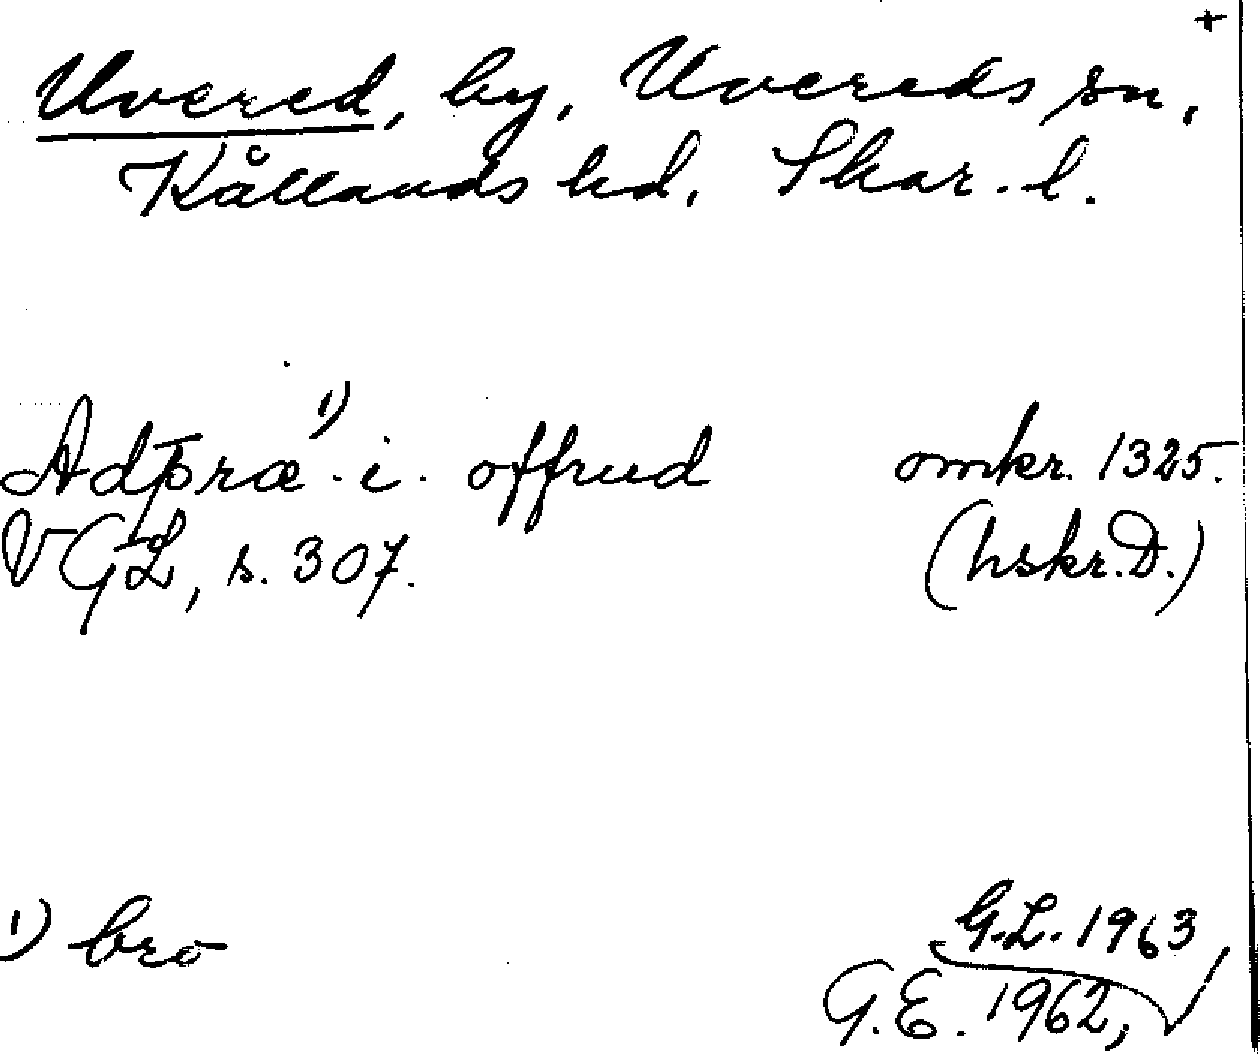 +
Uvered, by, Uvereds sn,
Kållands hd, Skar. l.
Adbræ ¹⁾ · i · offrud omkr. 1325.
VGL, s. 307. (hskr. D.)
¹⁾ bro G.L. 1963
G.E. 1962,